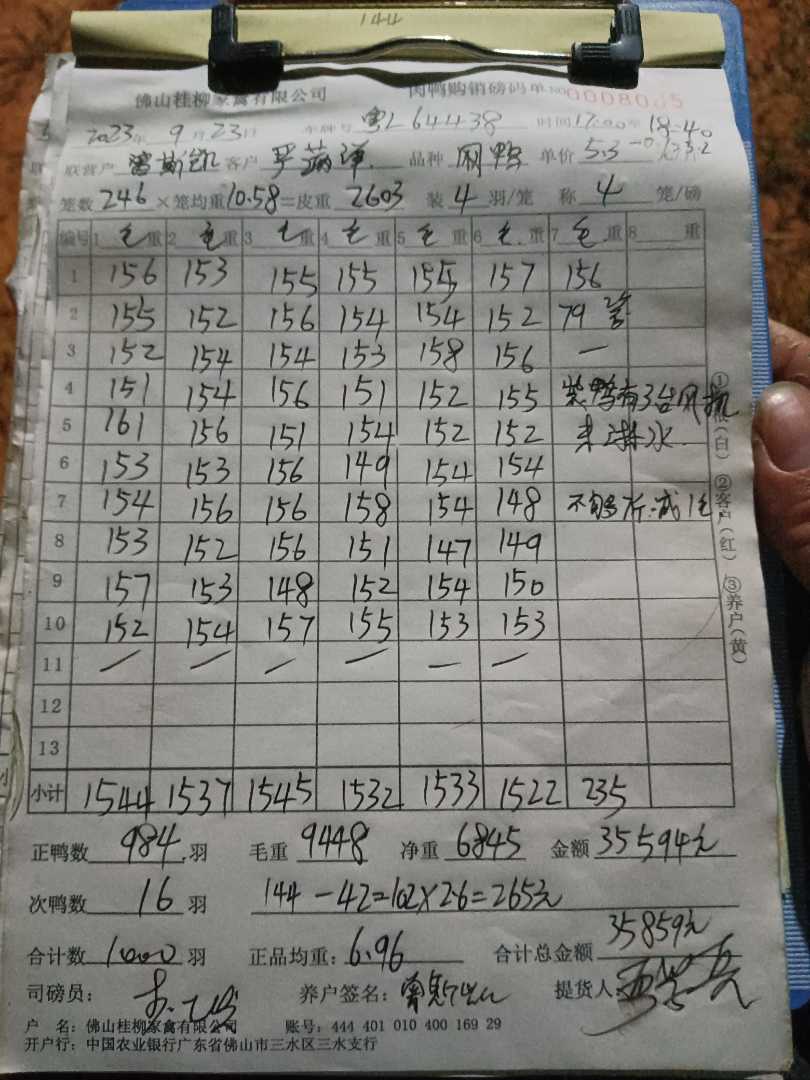 144
佛山桂柳家禽有限公司 肉鸭购销磅码单 №0008085
2023年9月23日 车牌号 粤L64438 时间17:00年 18:40
联营户 客户 品种 单价 5.3
笼数 246 ×笼均重10.58=皮重 2603 装 4 羽/笼 称 4 笼/磅
编号 1 毛重 2 毛重 3 毛重 4 毛重 5 毛重 6 毛重 7 毛重 8 重
1 156 153 155 155 155 157 156
2 155 152 156 154 154 152 79 2笼
3 152 154 154 153 158 156 —
4 151 154 156 151 152 155 装鸭有3台风机
5 161 156 151 154 152 152 未淋水
6 153 153 156 149 154 154
7 154 156 156 158 154 148 不够
8 153 152 156 151 147 149
9 157 153 148 152 154 150
10 152 154 157 155 153 153
11 — — — — — —
12
13
小计 1544 1537 1545 1532 1533 1522 235
正鸭数 984 羽 毛重 9448 净重 6845 金额 35594元
次鸭数 16 羽 144-42=102×2.6=265元
合计数 1000 羽 正品均重: 6.96 合计总金额 35859元
司磅员: 养户签名: 提货人
户 名: 佛山桂柳家禽有限公司 账号: 444 401 010 400 169 29
开户行: 中国农业银行广东省佛山市三水区三水支行
(白) ②客户(红) ③养户(黄)